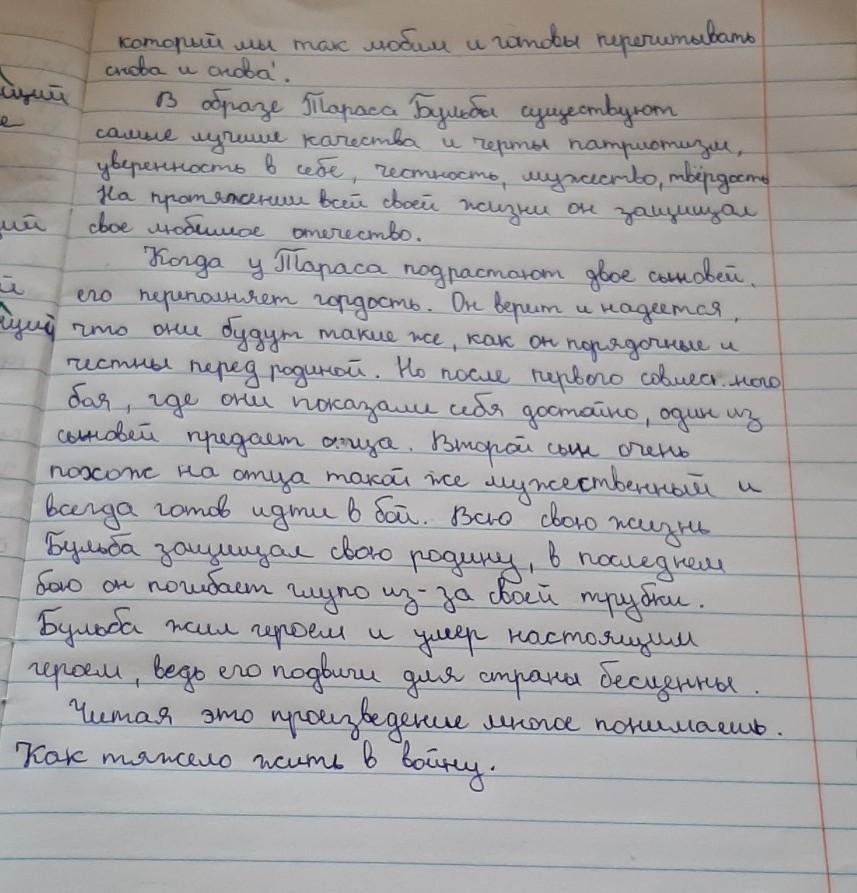 который мы так любим и готовы перечитывать
снова и снова.
ющий В образе Тараса Бульбы существуют
е самые лучшие качества и черты патриотизм,
уверенность в себе, честность, мужество, твёрдость
На протяжении всей своей жизни он защищал
ий свое любимое отечество.
Когда у Тараса подрастают двое сыновей,
й его переполняет гордость. Он верит и надеется,
ющий что они будут такие же, как он порядочные и
честны перед родиной. Но после первого совмест.ного
боя, где они показали себя достойно, один из
сыновей предает отца. Второй сын очень
похож на отца такой же мужественный и
всегда готов идти в бой. Всю свою жизнь
Бульба защищал свою родину, в последнем
бою он погибает глупо из-за своей трубки.
Бульба жил героем и умер настоящим
героем, ведь его подвиги для страны бесценны.
Читая это произведение многое понимаешь.
Как тяжело жить в войну.